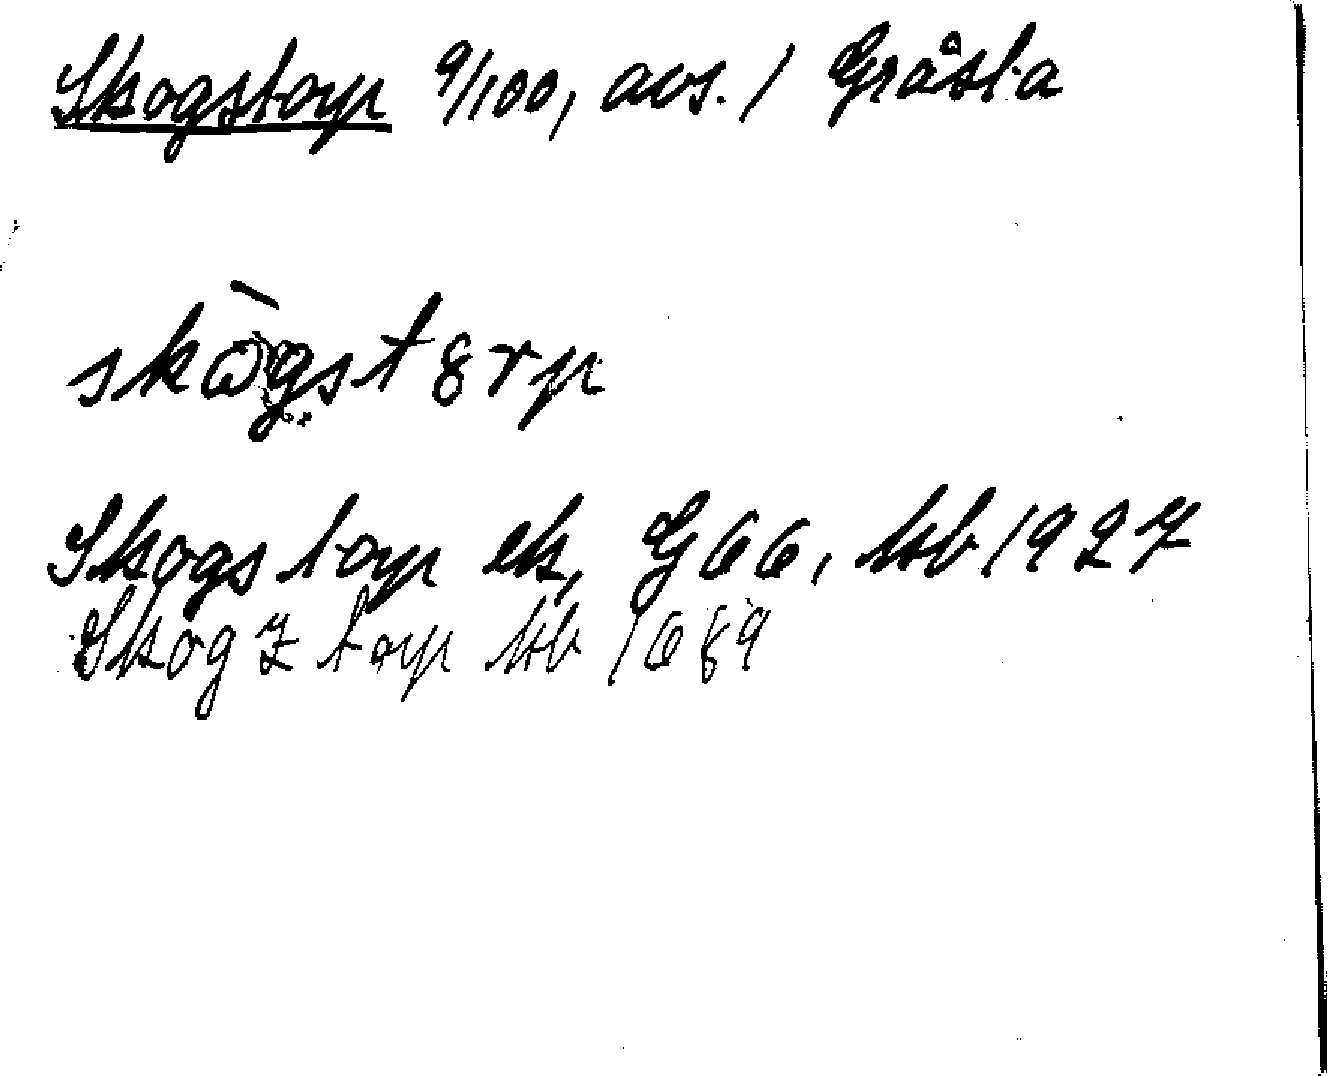 Skogstorp 9/100, avs. / Gråsta
skògst8rp
Skogstorp ek, G66, kb 1927
Skogztorp kb 1689